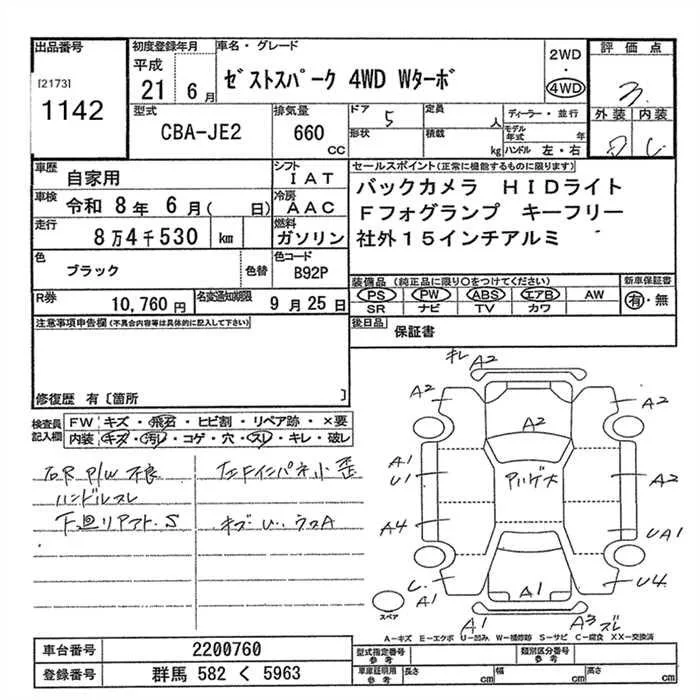 出品番号
[2173]
1142
初度登録年月
平成
21 6月
車名・グレード
ゼストスパーク 4WD Wターボ
2WD
・
4WD
評価点
3.
外装 内装
C
型式
CBA-JE2
排気量
660
CC
ドア 5
形状
定員
人
積載
kg
ディーラー・並行
モデル年式 年
ハンドル 左・右
車歴
自家用
シフト
IAT
車検
令和 8年 6月( 日)
冷房
AAC
走行
8万4千530 km
燃料
ガソリン
色
ブラック
色替
色コード
B92P
R券
10,760円
名変通知期限
9月25日
セールスポイント(正常に機能するものに限ります)
バックカメラ HIDライト
Fフォグランプ キーフリー
社外15インチアルミ
装備品 (純正品に限り○をつけてください)
PS PW ABS エアB AW
SR ナビ TV カワ
新車保証書
有・無
後日品
保証書
注意事項申告欄(不具合内容等は具体的に記入して下さい)
修復歴 有〔箇所 〕
検査員記入欄
FW キズ・飛石・ヒビ割・リペア跡・×要
内装 キズ・汚レ・コゲ・穴・スレ・キレ・破レ
右R P/W 不良
ハンドルスレ
下廻リアマフト. S
左Fインパネ小歪
キズ U.. ウスA
キレ A2
A2
A2
A2
A1
U1
A2
A4
UA1
A1
U4
A1
A1
A3 ズレ
スペア
A-キズ E-エクボ U-凹み W-補修跡 S-サビ C-腐食 XX-交換済
車台番号
2200760
登録番号
群馬 582 く 5963
型式指定番号
参考
類別区分番号
参考
車庫証明用
参考
長さ cm
幅 cm
高さ cm